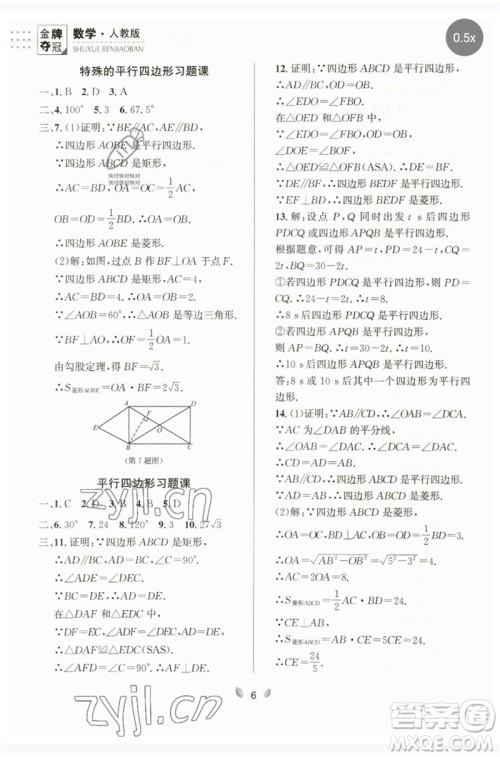 金牌
夺冠
数学·人教版
SHUXUE RENJIAOBAN
0.5x
特殊的平行四边形习题课
一、1. B 2. D 3. A
二、4. 100° 5. 3 6. 67.5°
三、7. (1)证明：∵BE∥AC，AE∥BD，
∴四边形AOBE是平行四边形.
∵四边形ABCD是矩形，
∴AC=BD，OA=OC=1/2AC，
OB=OD=1/2BD. ∴OA=OB.
∴四边形AOBE是菱形.
(2)解：如图，过点B作BF⊥OA于点F.
∵四边形ABCD是矩形，AC=4，
∴AC=BD=4. ∴OA=OB=2.
∵∠AOB=60°，∴△AOB是等边三角形.
∵BF⊥OA，∴OF=1/2OA=1.
由勾股定理，得BF=√3.
∴S菱形AOBE=OA·BF=2√3.
A
D
E
F
O
B
C
(第7题图)
平行四边形习题课
一、1. C 2. B 3. A 4. B 5. D
二、6. 30° 7. 24 8. 120° 9. 3 10. 27√3
三、11. 证明：∵四边形ABCD是矩形，
∴AD∥BC，AD=BC，∠C=90°.
∴∠ADF=∠DEC.
∵AF⊥DE，
∴∠AFD=∠C=90°.
在△DAF和△EDC中，
∵DF=EC，
∴△DAF≌△EDC(ASA).
∴AD=DE. ∴BC=DE.
12. 证明：∵四边形ABCD是平行四边形，
∴AD∥BC，OB=OD.
∴∠EDO=∠FBO.
在△OED和△OFB中，
∠DOE=∠BOF，
∴△OED≌△OFB(ASA).
∴DE=BF.
又∵DE∥BF，
∴四边形BEDF是平行四边形.
∵EF⊥BD，∴四边形BEDF是菱形.
13. 解：设点P，Q同时出发t s后四边形
PDCQ或四边形APQB是平行四边形.
根据题意，得AP=t，PD=24-t，CQ=
2t，BQ=30-2t.
①若四边形PDCQ是平行四边形，则PD
=CQ. ∴24-t=2t. ∴t=8.
∴8 s后四边形PDCQ是平行四边形.
②若四边形APQB是平行四边形，则AP
=BQ. ∴t=30-2t. ∴t=10.
∴10 s后四边形APQB是平行四边形.
答：8 s或10 s后其中一个四边形为平行四
边形.
14. (1)证明：∵AB∥CD，∴∠OAB=∠DCA.
∵AC为∠DAB的平分线，
∴∠OAB=∠DAC.
∴∠DCA=∠DAC.
∴CD=AD=AB.
∵AB∥CD，
∴四边形ABCD是平行四边形.
∵AD=AB，
∴四边形ABCD是菱形.
∴OA=√AB²-OB²=√5²-3²=4.
∴AC=2OA=8.
∴S菱形ABCD=1/2AC·BD=24.
∴S菱形ABCD=AB·CE=5CE=24.
∴CE=24/5.
6
zyjl.cn
zyjl.cn
答案圈